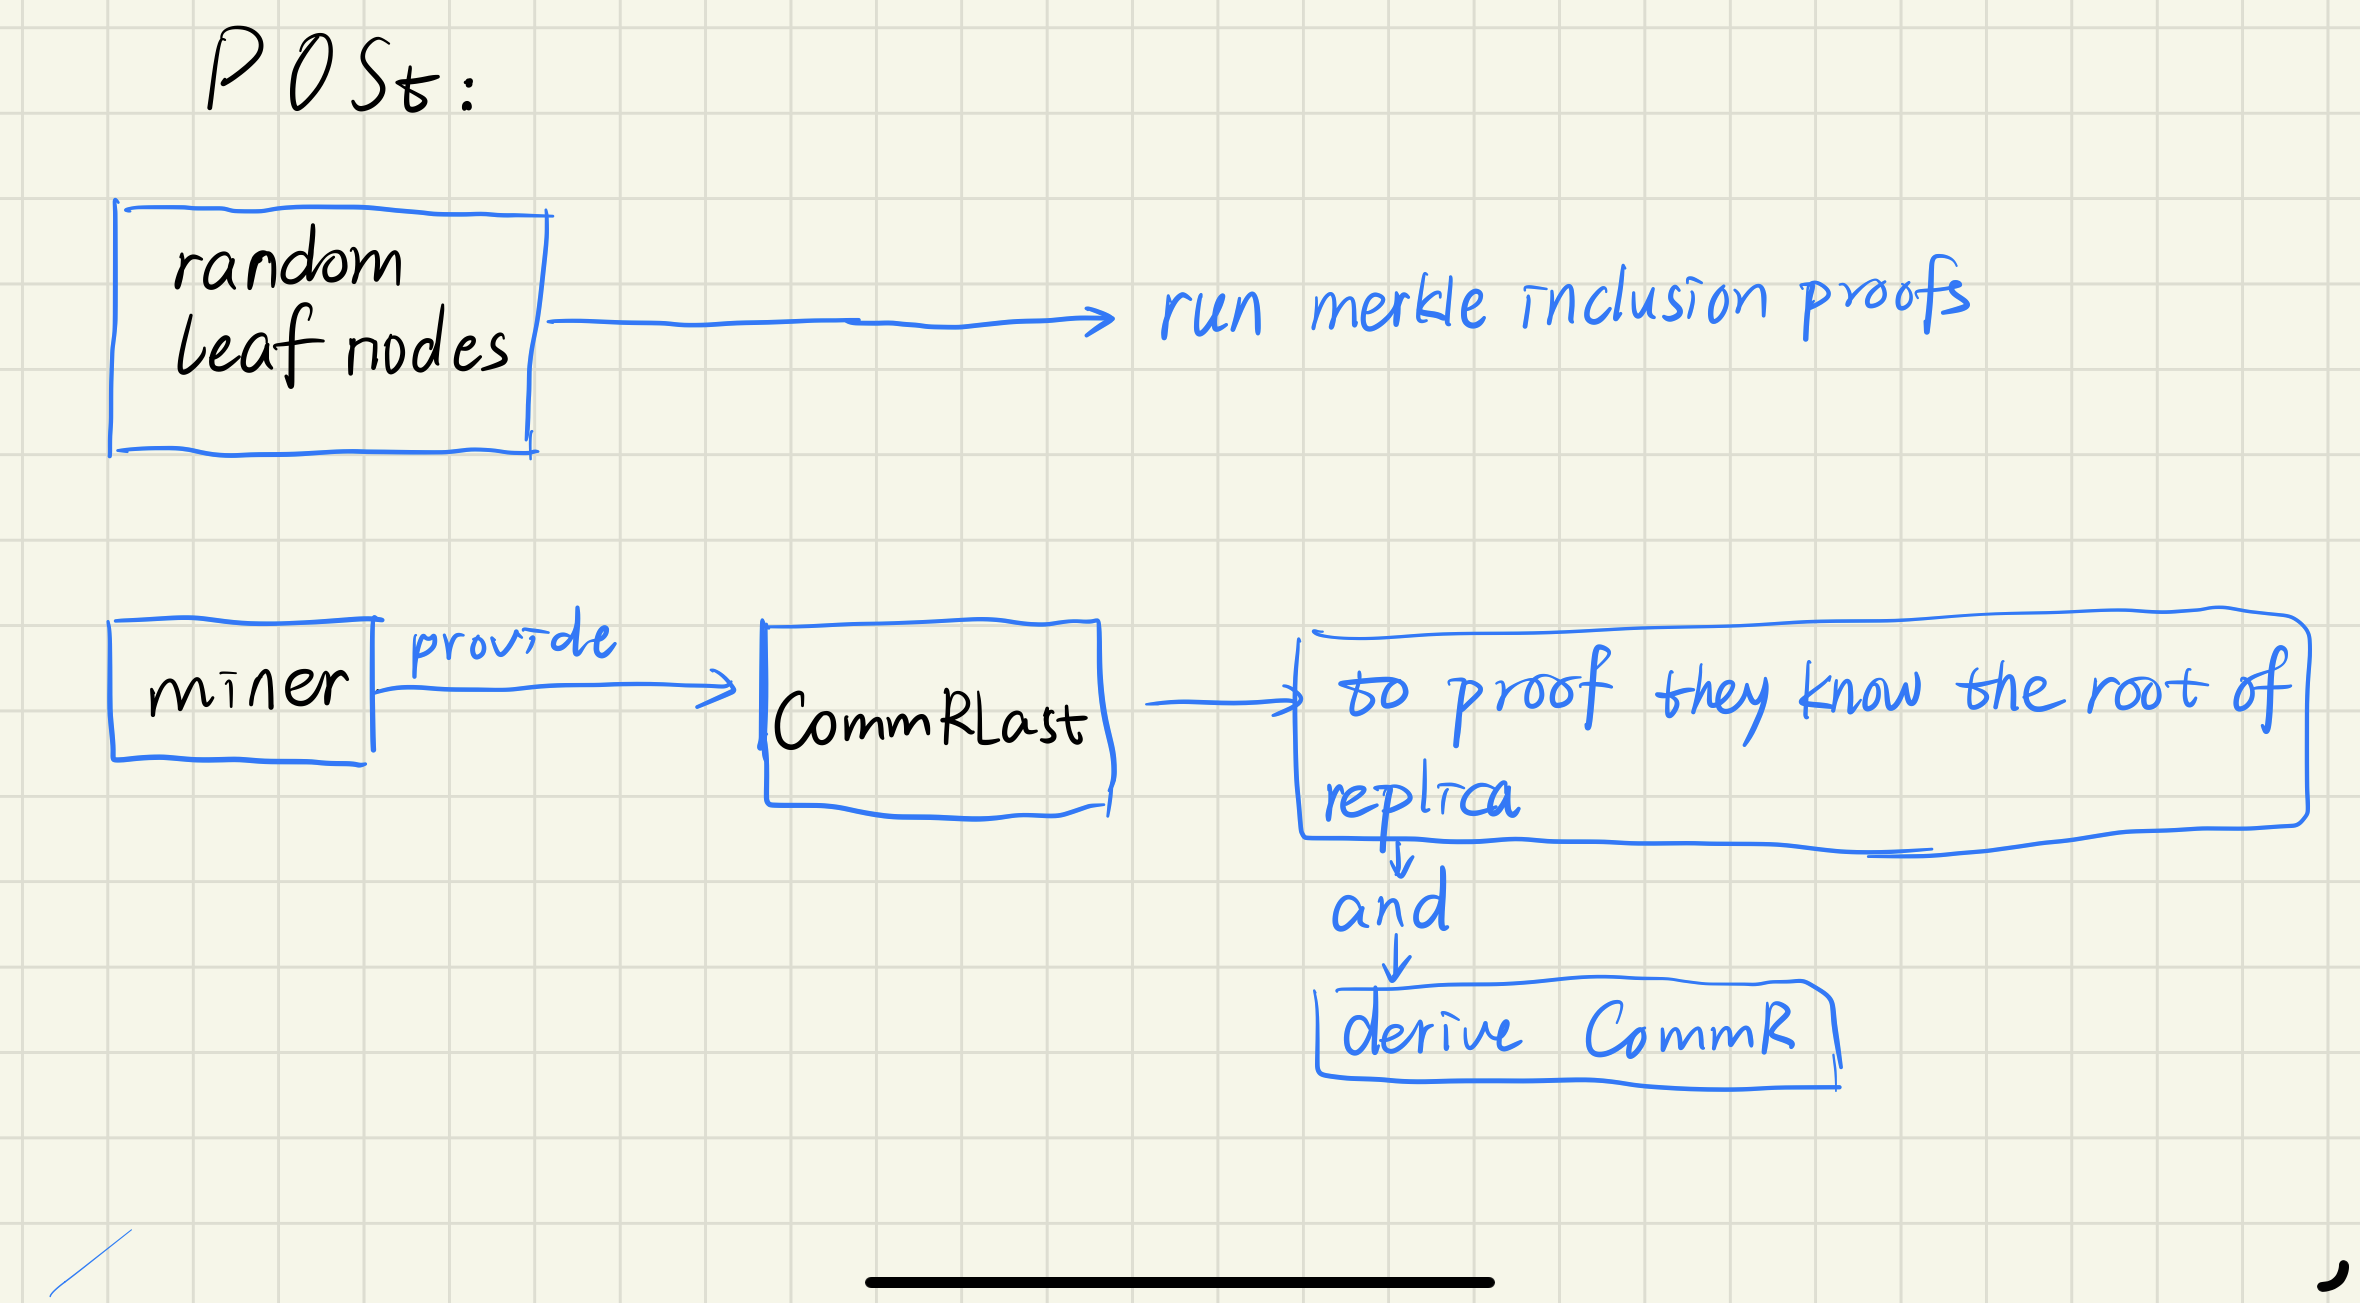 POSt:
random
leaf nodes
run merkle inclusion proofs
miner
provide
CommRLast
to proof they know the root of
replica
and
derive CommR